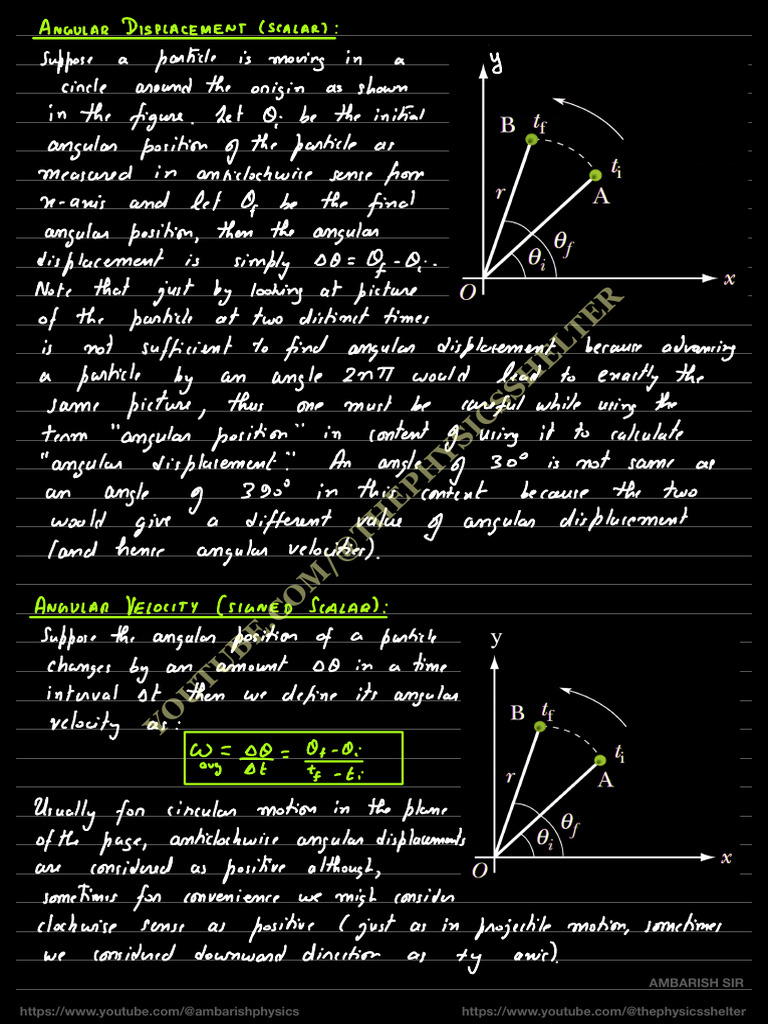 ANGULAR DISPLACEMENT (SCALAR):
Suppose a particle is moving in a
circle around the origin as shown
in the figure. Let θi be the initial
angular position of the particle as
measured in anticlockwise sense from
x-axis and let θf be the final
angular position, then the angular
displacement is simply Δθ = θf - θi.
Note that just by looking at picture
of the particle at two distinct times
is not sufficient to find angular displacement because advancing
a particle by an angle 2nπ would lead to exactly the
same picture, thus one must be careful while using the
term "angular position" in context of using it to calculate
"angular displacement". An angle of 30° is not same as
an angle of 390° in this context because the two
would give a different value of angular displacement
(and hence angular velocities).
y
B
tf
ti
r
A
θf
θi
O
x
YOUTUBE.COM/@THEPHYSICSSHELTER
ANGULAR VELOCITY (SIGNED SCALAR):
Suppose the angular position of a particle
changes by an amount Δθ in a time
interval Δt then we define its angular
velocity as:
ωavg = Δθ/Δt = (θf - θi)/(tf - ti)
Usually for circular motion in the plane
of the page, anticlockwise angular displacements
are considered as positive although,
sometimes for convenience we migh consider
clockwise sense as positive (just as in projectile motion, sometimes
we considered downward direction as +y axis).
y
B
tf
ti
r
A
θf
θi
O
x
AMBARISH SIR
https://www.youtube.com/@ambarishphysics
https://www.youtube.com/@thephysicsshelter